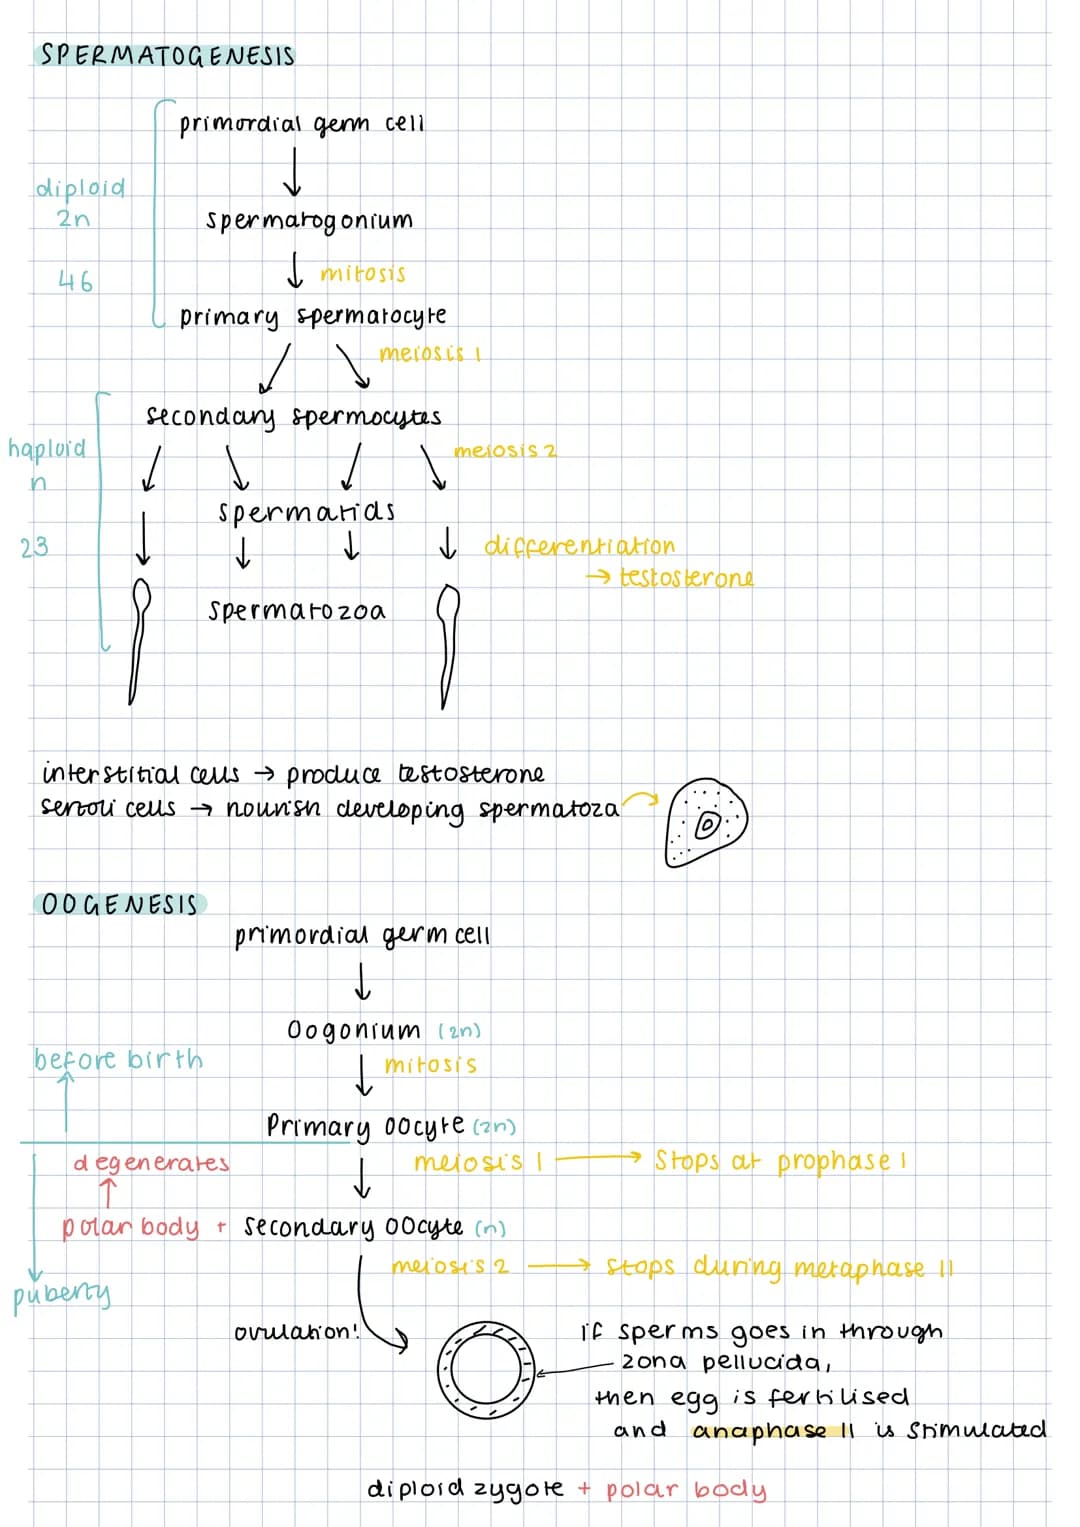 SPERMATOGENESIS
primordial germ cell
diploid
2n
46
spermatogonium
mitosis
primary spermatocyte
meiosis 1
secondary spermocytes
haploid
n
23
meiosis 2
spermatids
differentiation
→ testosterone
spermatozoa
interstitial cells → produce testosterone
sertoli cells → nourish developing spermatoza
OOGENESIS
primordial germ cell
Oogonium (2n)
before birth
mitosis
Primary oocyte (2n)
degenerates
meiosis 1 → stops at prophase 1
polar body + secondary oocyte (n)
meiosis 2 → stops during metaphase II
puberty
ovulation!
if sperms goes in through
zona pellucida,
then egg is fertilised
and anaphase II is stimulated
diploid zygote + polar body